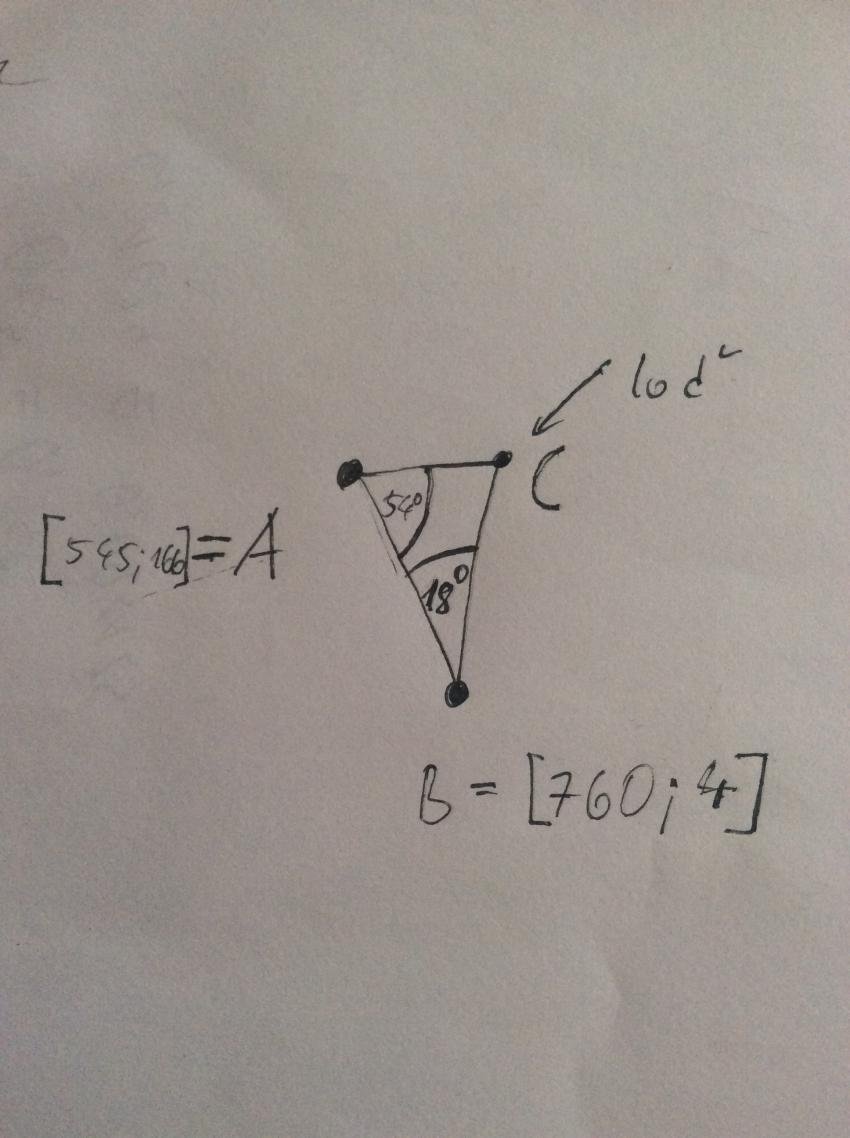 loď
C
54°
[545;166]=A
18°
B = [760;4]